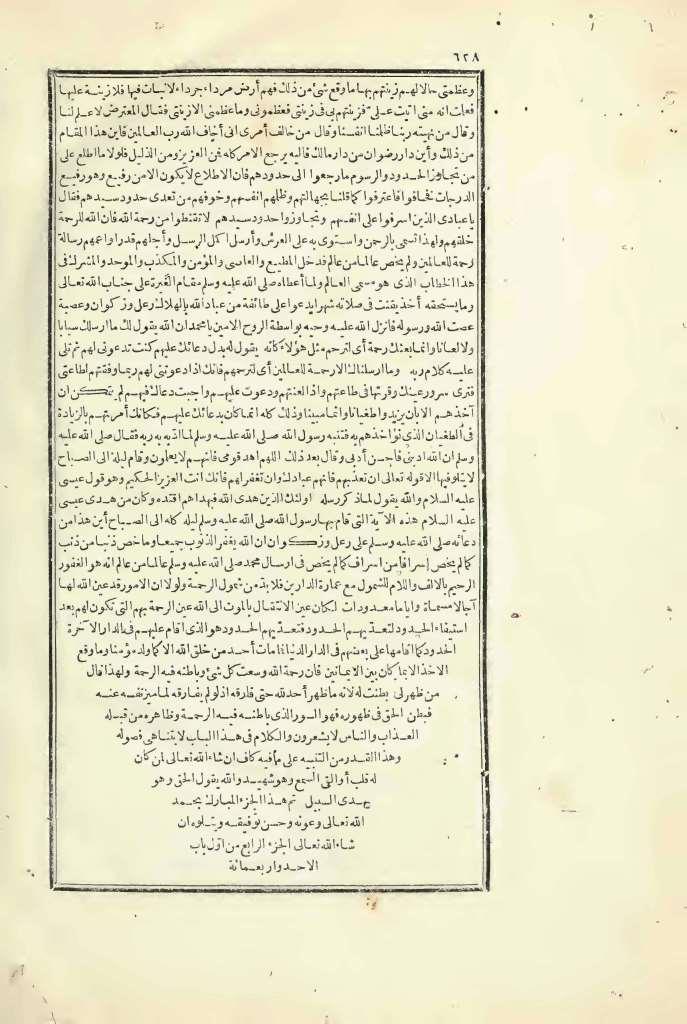 ٦٢٨
وعظمتى حالا لهم زينتهم بها ما وقع شئ من ذلك فهم أرض مرداء جرداء لا نبات فيها فلا زينة عليها
فعلمت انه متى اتيت على فزينتهم بى فى زينتى فعظمونى وما عظمنى الا زينتى فقال المعترض لا علم لنا
وقال من نهيته ربنا ظلمنا انفسنا وقال من خالف أمرى انى أخاف الله رب العالمين فاين هذا المقام
من ذلك وأين دار رضوان من دار مالك فاليه يرجع الامر كله فمن العزيز ومن الذليل فلولا ما اطلع على
من تجاوز الحدود والرسوم ما رجعوا الى حدودهم فان الاطلاع لا يكون الا من رفيع وهو رفيع
الدرجات فخافوا فاعترفوا كما قلنا بجهالتهم وظلمهم انفسهم وخوفهم من تعدى حدود سيدهم فقال
يا عبادى الذين اسرفوا على انفسهم وتجاوزوا حدود سيدهم لا تقنطوا من رحمة الله فان الله للرحمة
خلقهم ولهذا تسمى بالرحمن واستوى به على العرش وأرسل اكمل الرسل وأجلهم قدرا واعمهم رسالة
رحمة للعالمين ولم يخص عالما من عالم فدخل المطيع والعاصى والمؤمن والمكذب والموحد والمشرك فى
هذا الخطاب الذى هو مسمى العالم ولما أعطاه صلى الله عليه وسلم مقام الغيرة على جناب الله تعالى
وما يستحقه أخذ يقنت فى صلاته شهرا يدعو على طائفة من عباد الله بالهلاك رعل وذكوان وعصية
عصت الله ورسوله فانزل الله عليه وحيه بواسطة الروح الامين يا محمد ان الله يقول لك ما ارسلك سبابا
ولا لعانا وانما بعثك رحمة أى لترحم مثل هؤلاء كانه يقول له بدل دعائك عليهم كنت تدعونى لهم ثم تلى
عليه كلام ربه وما ارسلناك الا رحمة للعالمين أى لترحمهم فانك اذا دعوتنى لهم ربما وفقتهم لطاعتى
فترى سرور عينك وقرتها فى طاعتهم واذا لعنتهم ودعوت عليهم واجبت دعاءك فيهم لم يتمكن ان
آخذهم الا بان يزيدوا طغيانا واثما مبينا وذلك كله انما كان بدعائك عليهم فكانك أمرتهم بالزيادة
فى الطغيان الذى نؤاخذهم به فتنبه رسول الله صلى الله عليه وسلم لما ادّبه به ربه فقال صلى الله عليه
وسلم ان الله ادبنى فاحسن أدبى وقال بعد ذلك اللهم اهد قومى فانهم لا يعلمون وقام ليلة الى الصباح
لا يتلو فيها الا قوله تعالى ان تعذبهم فانهم عبادك وان تغفر لهم فانك انت العزيز الحكيم وهو قول عيسى
عليه السلام والله يقول لما ذكر رسله اولئك الذين هدى الله فبهداهم اقتده وكان من هدى عيسى
عليه السلام هذه الآية التى قام بها رسول الله صلى الله عليه وسلم ليله كله الى الصباح أين هذا من
دعائه صلى الله عليه وسلم على رعل وذكوان ان الله يغفر الذنوب جميعا وما خص ذنبا من ذنب
كما لم يخص إسرافا من اسراف كما لم يخص فى ارسال محمد صلى الله عليه وسلم عالما من عالم انه هو الغفور
الرحيم بالالف واللام للشمول مع عمارة الدارين فلا بد من شمول الرحمة ولولا ان الامور قد عين الله لها
آجالا مسماة واياما معدودات لكان عين الانتقال بالموت الى الله عين الرحمة بهم التى تكون لهم بعد
استيفاء الحدود لتعذيبهم الحدود فتعذيبهم الحدود هو الذى اقام عليهم فى الدار الآخرة
الحدود كما اقامها على بعضهم فى الدار الدنيا فما مات أحد من خلق الله الا كما ولد مؤمنا وما وقع
الاخذ الا بما كان بين الايمانين فان رحمة الله وسعت كل شئ وباطنه فيه الرحمة ولهذا قال
من ظهر لى بطنت له لانه ما ظهر أحد لله حتى فارقه اذ لو لم يفارقه لما ميز نفسه عنه
فبطن الحق فى ظهوره فهو السور الذى باطنه فيه الرحمة وظاهره من قبله
العذاب والناس لا يشعرون والكلام فى هذا الباب لا يتناهى فصوله
وهذا القدر من التنبيه على ما فيه كاف ان شاء الله تعالى لمن كان
له قلب أو القى السمع وهو شهيد والله يقول الحق وهو
يهدى السبيل تم هذا الجزء المبارك بحمد
الله تعالى وعونه وحسن توفيقه ويتلوه ان
شاء الله تعالى الجزء الرابع من اول باب
الاحد واربعمائة